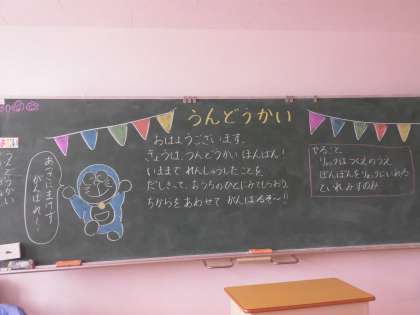 うんどうかい
おはようございます。
きょうは、うんどうかい ほんばん!
いままで れんしゅうしたことを
だしきって、おうちのひとにみてもらおう。
ちからを あわせて がんばるぞ~!!
あつさにまけず
がんばれ~!
やること
リュックはつくえのうえ
ぽんぽんをリュックにいれる
といれ